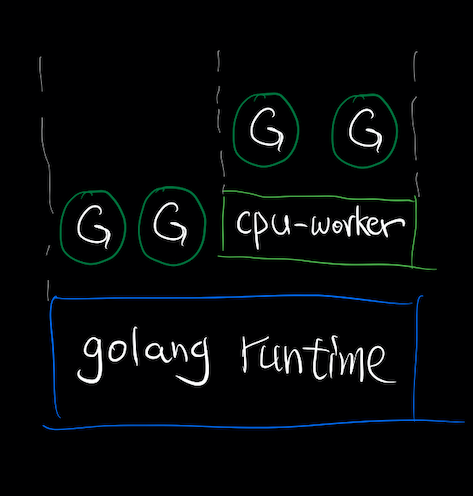 G G
G G cpu-worker
golang runtime